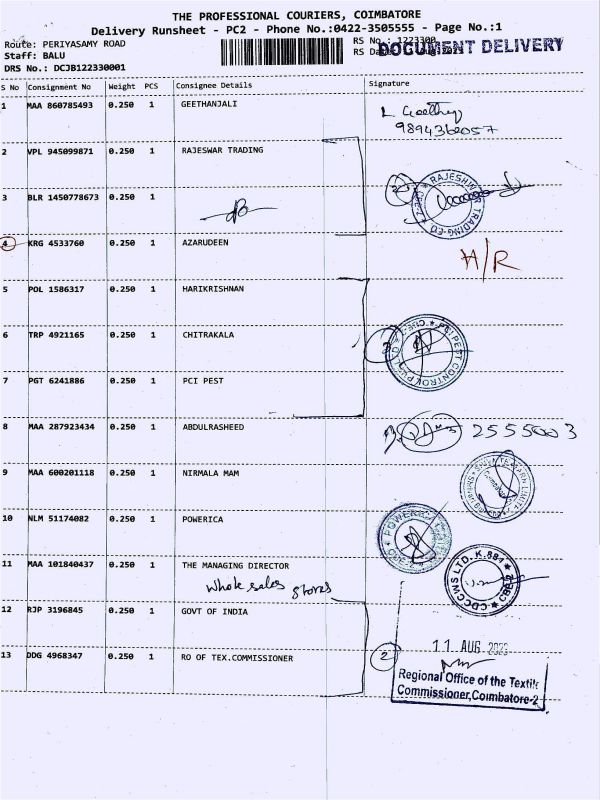 THE PROFESSIONAL COURIERS, COIMBATORE
Delivery Runsheet - PC2 - Phone No.:0422-3505555 - Page No.:1
Route: PERIYASAMY ROAD
Staff: BALU
DRS No.: DCJB122330001
RS No.: 1223300
RS Da
DOCUMENT DELIVERY
S No Consignment No Weight PCS Consignee Details Signature
1 MAA 860785493 0.250 1 GEETHANJALI
2 VPL 945099871 0.250 1 RAJESWAR TRADING
3 BLR 1450778673 0.250 1
2 RAJESHWAR TRADING CO
4 KRG 4533760 0.250 1 AZARUDEEN
H/R
5 POL 1586317 0.250 1 HARIKRISHNAN
6 TRP 4921165 0.250 1 CHITRAKALA
3 PCI PEST CONTROL PVT LTD
7 PGT 6241886 0.250 1 PCI PEST
8 MAA 287923434 0.250 1 ABDULRASHEED
2555003
9 MAA 600201118 0.250 1 NIRMALA MAM
10 NLM 51174082 0.250 1 POWERICA
11 MAA 101840437 0.250 1 THE MANAGING DIRECTOR
Whole sales stores
CDCCWS LTD. K.884 CBE-2
12 RJP 3196845 0.250 1 GOVT OF INDIA
11 AUG
13 DDG 4968347 0.250 1 RO OF TEX.COMMISSIONER
2
Regional Office of the Textile
Commissioner,Coimbatore-2